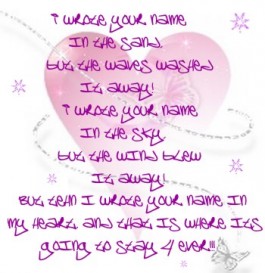 I wrote your name
In the sand.
but the waves washed
It away!
I wrote your name
In the sky
but the wind blew
It away!
But then I wrote your name in
my heart, and that is where its
going to stay 4 ever!!!